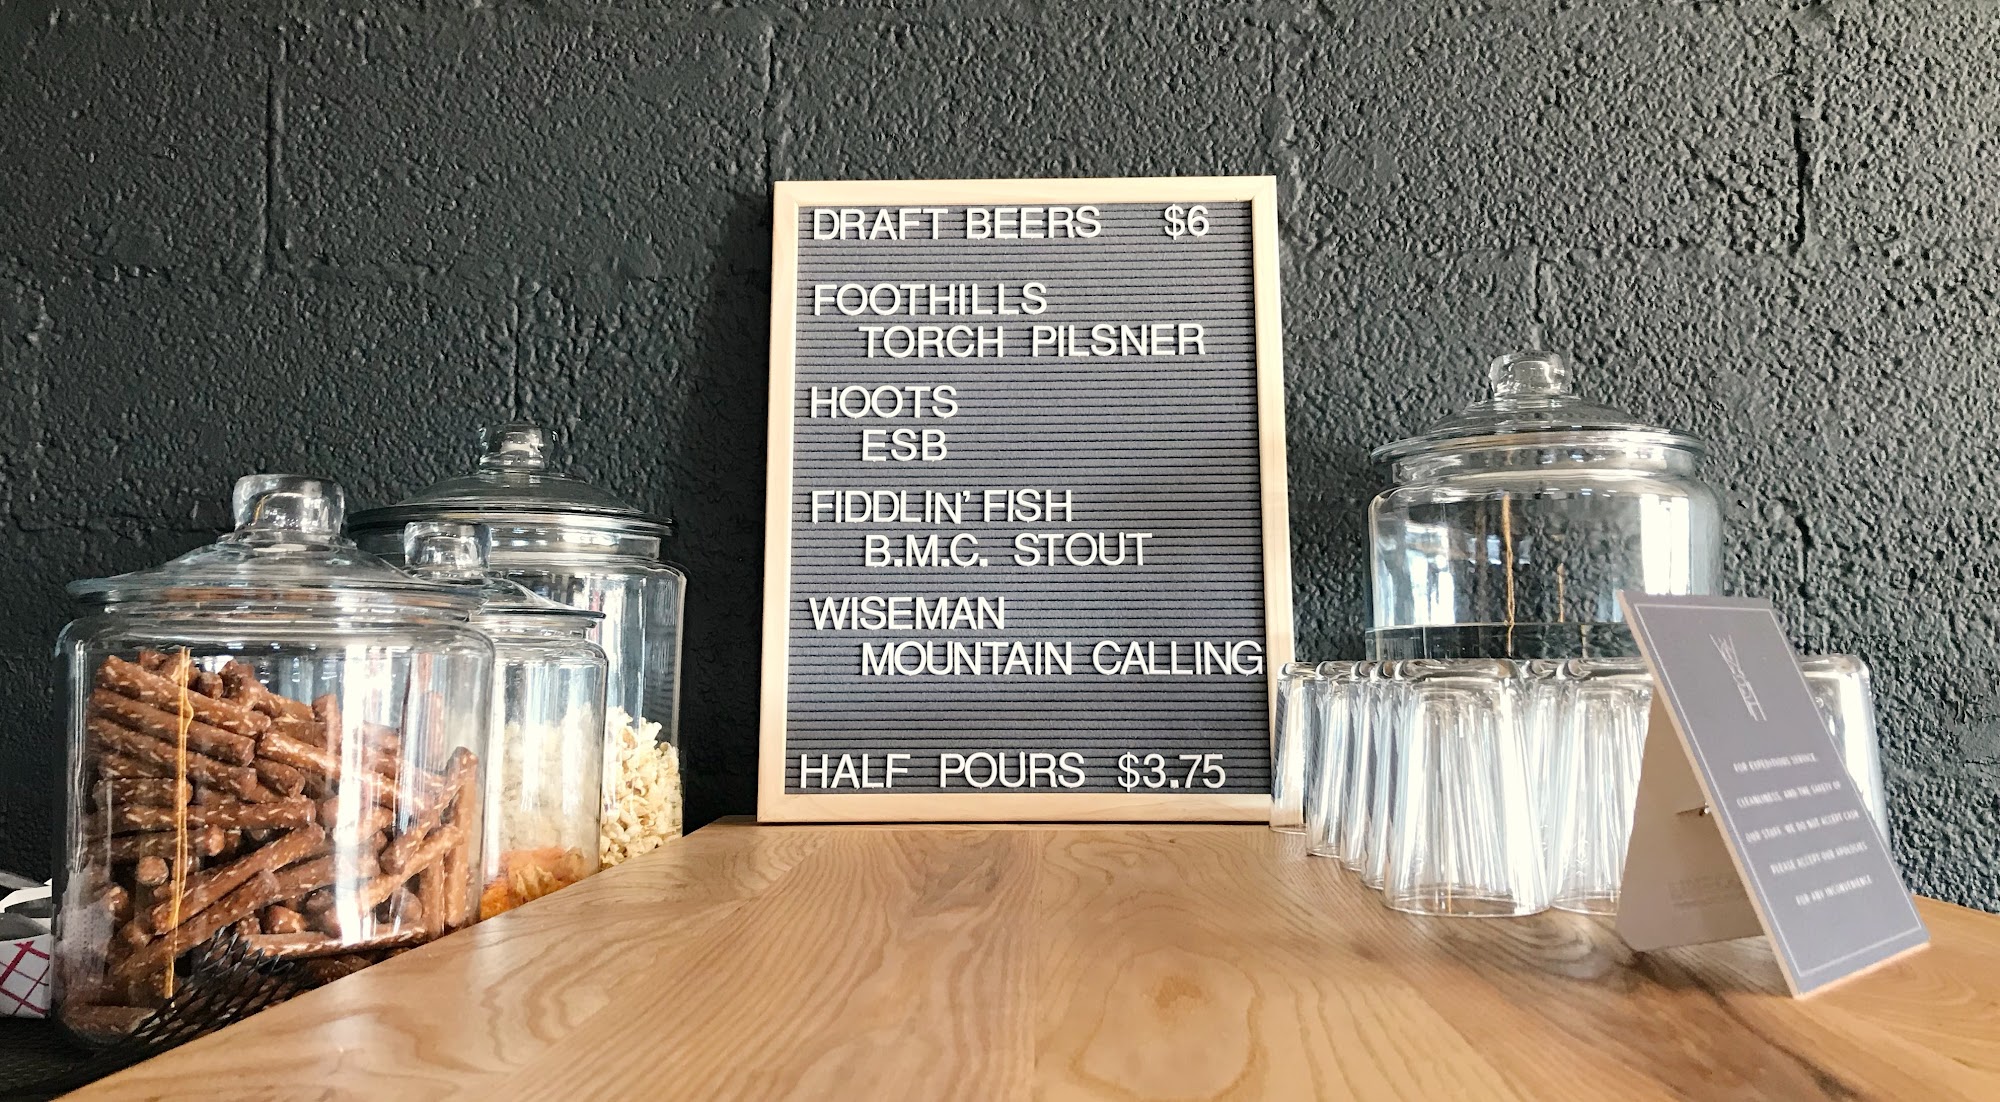 DRAFT BEERS $6
FOOTHILLS
TORCH PILSNER
HOOTS
ESB
FIDDLIN' FISH
B.M.C. STOUT
WISEMAN
MOUNTAIN CALLING
HALF POURS $3.75
FOR EXPEDITIOUS SERVICE,
CLEANLINESS, AND THE SAFETY OF
OUR STAFF WE DO NOT ACCEPT CASH
PLEASE ACCEPT OUR APOLOGIES
FOR ANY INCONVENIENCE